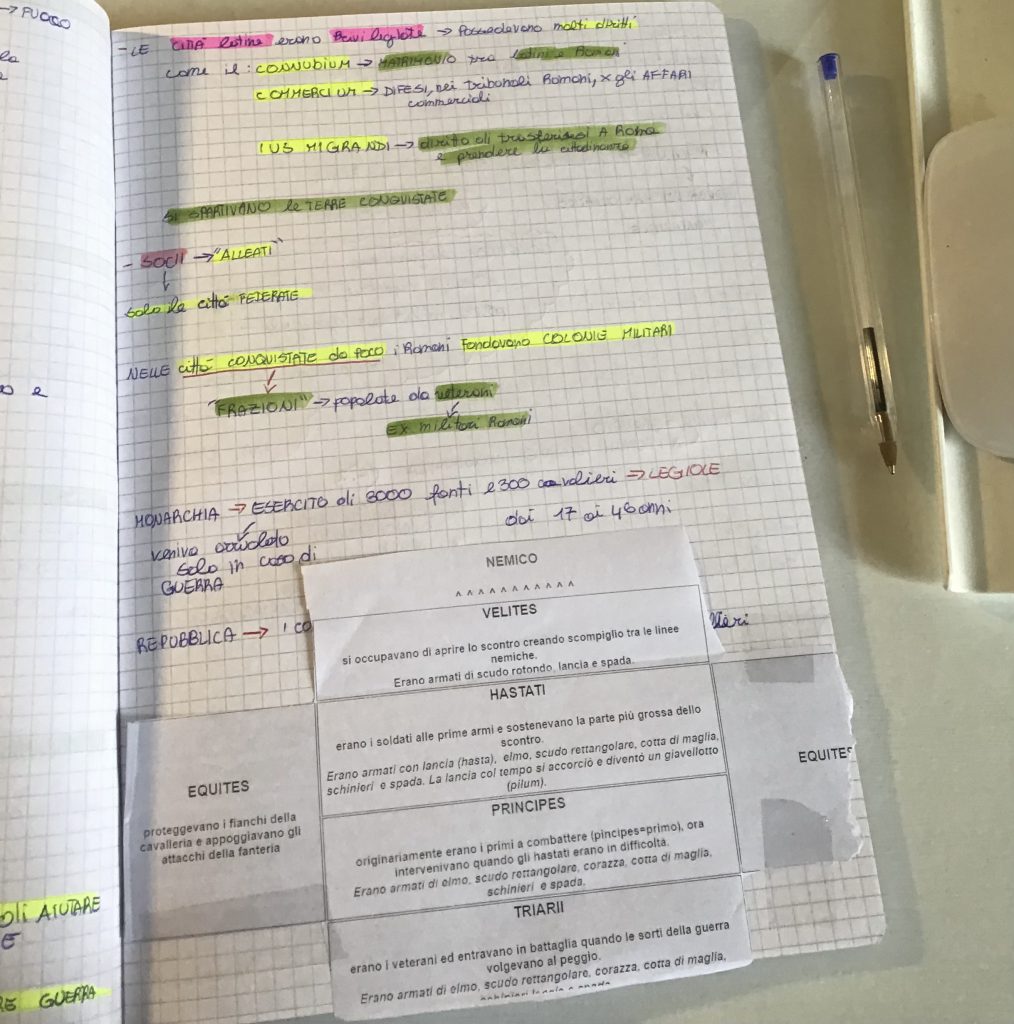 → FUOCO
- LE CITTÀ latine erano Privilegiate → Possedevano molti diritti
come il: CONNUBIUM → MATRIMONIO tra latini e Romani
COMMERCIUM → DIFESI, nei tribunali Romani, x gli AFFARI
commerciali
IUS MIGRANDI → diritto di trasferirsi A Roma
e prendere la cittadinanza
SI SPARTIVANO le TERRE CONQUISTATE
- SOCII → "ALLEATI"
↓
solo le città FEDERATE
NELLE città CONQUISTATE da poco i Romani Fondavano COLONIE MILITARI
"FRAZIONI" → popolate da veterani
EX militari Romani
MONARCHIA → ESERCITO di 3000 fanti e 300 cavalieri → LEGIOLE
dai 17 ai 46 anni
veniva
solo in caso di
GUERRA
REPUBBLICA →
NEMICO
^ ^ ^ ^ ^ ^ ^ ^ ^ ^ ^
VELITES
si occupavano di aprire lo scontro creando scompiglio tra le linee
nemiche.
Erano armati di scudo rotondo, lancia e spada.
HASTATI
erano i soldati alle prime armi e sostenevano la parte più grossa dello
scontro.
Erano armati con lancia (hasta), elmo, scudo rettangolare, cotta di maglia,
schinieri e spada. La lancia col tempo si accorciò e diventò un giavellotto
(pilum).
EQUITES
proteggevano i fianchi della
cavalleria e appoggiavano gli
attacchi della fanteria
EQUITES
PRINCIPES
originariamente erano i primi a combattere (pincipes=primo), ora
intervenivano quando gli hastati erano in difficoltà.
Erano armati di elmo, scudo rettangolare, corazza, cotta di maglia,
schinieri e spada.
TRIARII
erano i veterani ed entravano in battaglia quando le sorti della guerra
volgevano al peggio.
Erano armati di elmo, scudo rettangolare, corazza, cotta di maglia,
AIUTARE
GUERRA